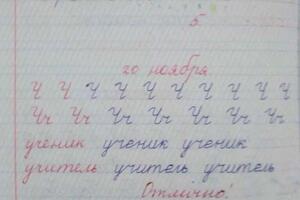 5
20 ноября
Ч Ч Ч Ч Ч Ч Ч Ч Ч
Чч Чч Чч Чч Чч Чч Чч
ученик ученик ученик
учитель учитель учитель
Отлично!